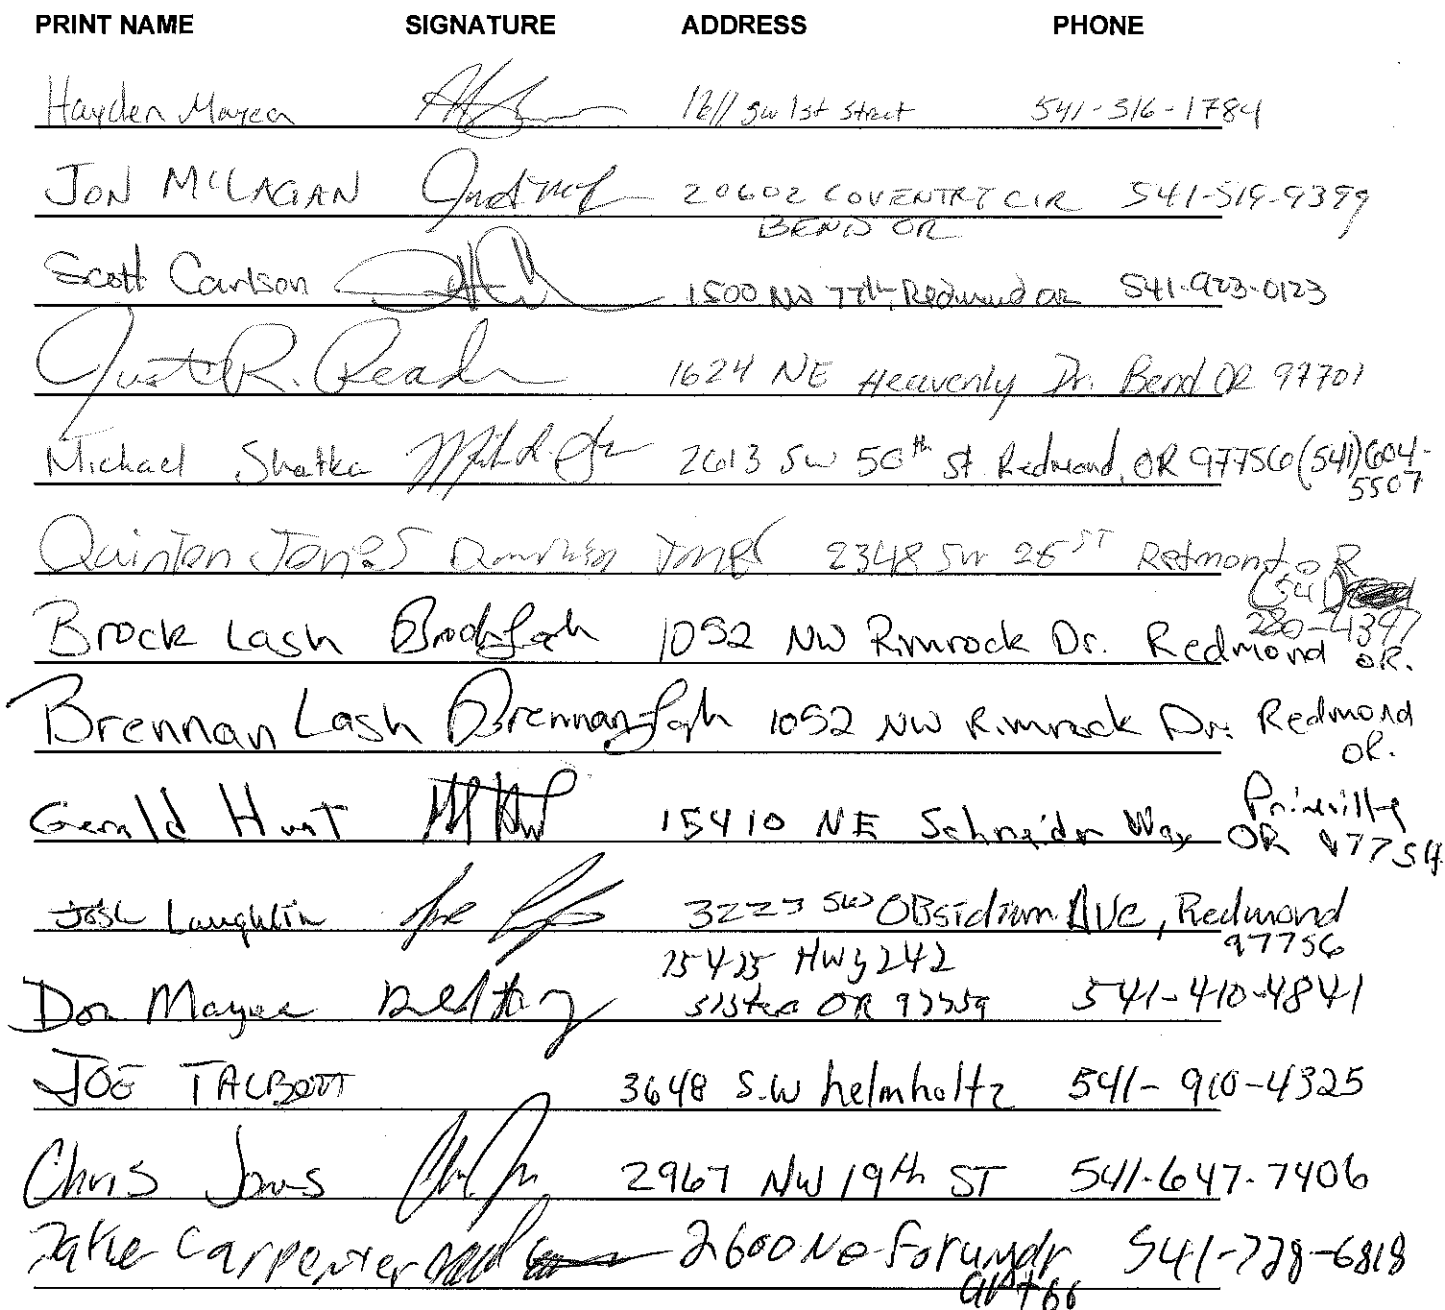 PRINT NAME SIGNATURE ADDRESS PHONE
Hayden Mayea SW 1st Street 541-316-1784
JON McLAGAN 20602 COVENTRY CIR 541-519-9399
BEND OR
Scott Carlson 1500 NW 7th, Redmond OR 541-923-0123
Just R. Read 1624 NE Heavenly Dr. Bend OR 97701
Michael Shatka 2613 SW 50th St. Redmond, OR 97756 (541)604-
5507
Quinton Jones Quinton Jones 2348 SW 26 ST Redmond OR
(541)
280-4397
Brock Lash Brock Lash 1052 NW Rimrock Dr. Redmond OR.
Brennan Lash Brennan Lash 1052 NW Rimrock Dr. Redmond
OR.
Gerald Hunt 15410 NE Schneider Way Prineville
OR 97754
Josh Laughlin 3223 SW OBsidium AVE, Redmond
97756
Hwy 242
Don Mayea Sisters OR 97759 541-410-4841
JOE TALBOTT 3648 S.W helmholtz 541-910-4325
Chris Jones 2967 NW 19th ST 541-647-7406
Carpenter 2600 NE Forum dr 541-728-6818
apt 66